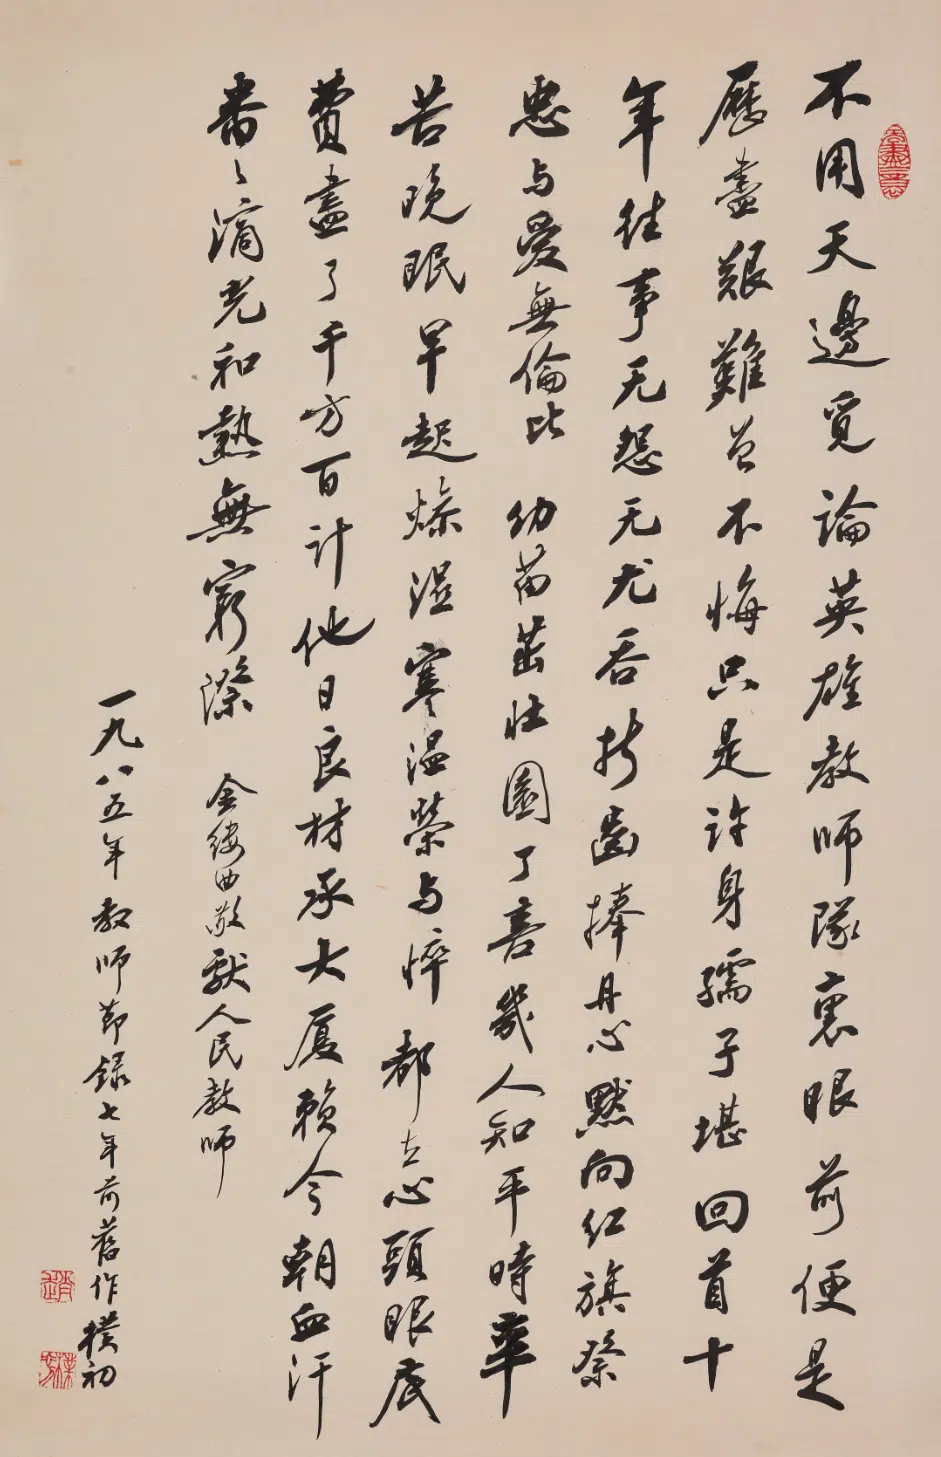 無盡意
不用天邊覓論英雄教師隊裏眼前便是
歷盡艱難曾不悔只是許身孺子堪回首十
年往事无怨无尤吞折齒捧丹心默向红旗祭
忠与愛無倫比 幼苗茁壯園丁喜幾人知平時辛
苦晚眠早起燥濕寒温榮与悴都在心頭眼底
費盡了千方百計他日良材承大厦賴今朝血汗
番々滴光和熱無窮際 金縷曲敬獻人民教師
一九八五年教師節録七年前舊作樸初
趙
樸初